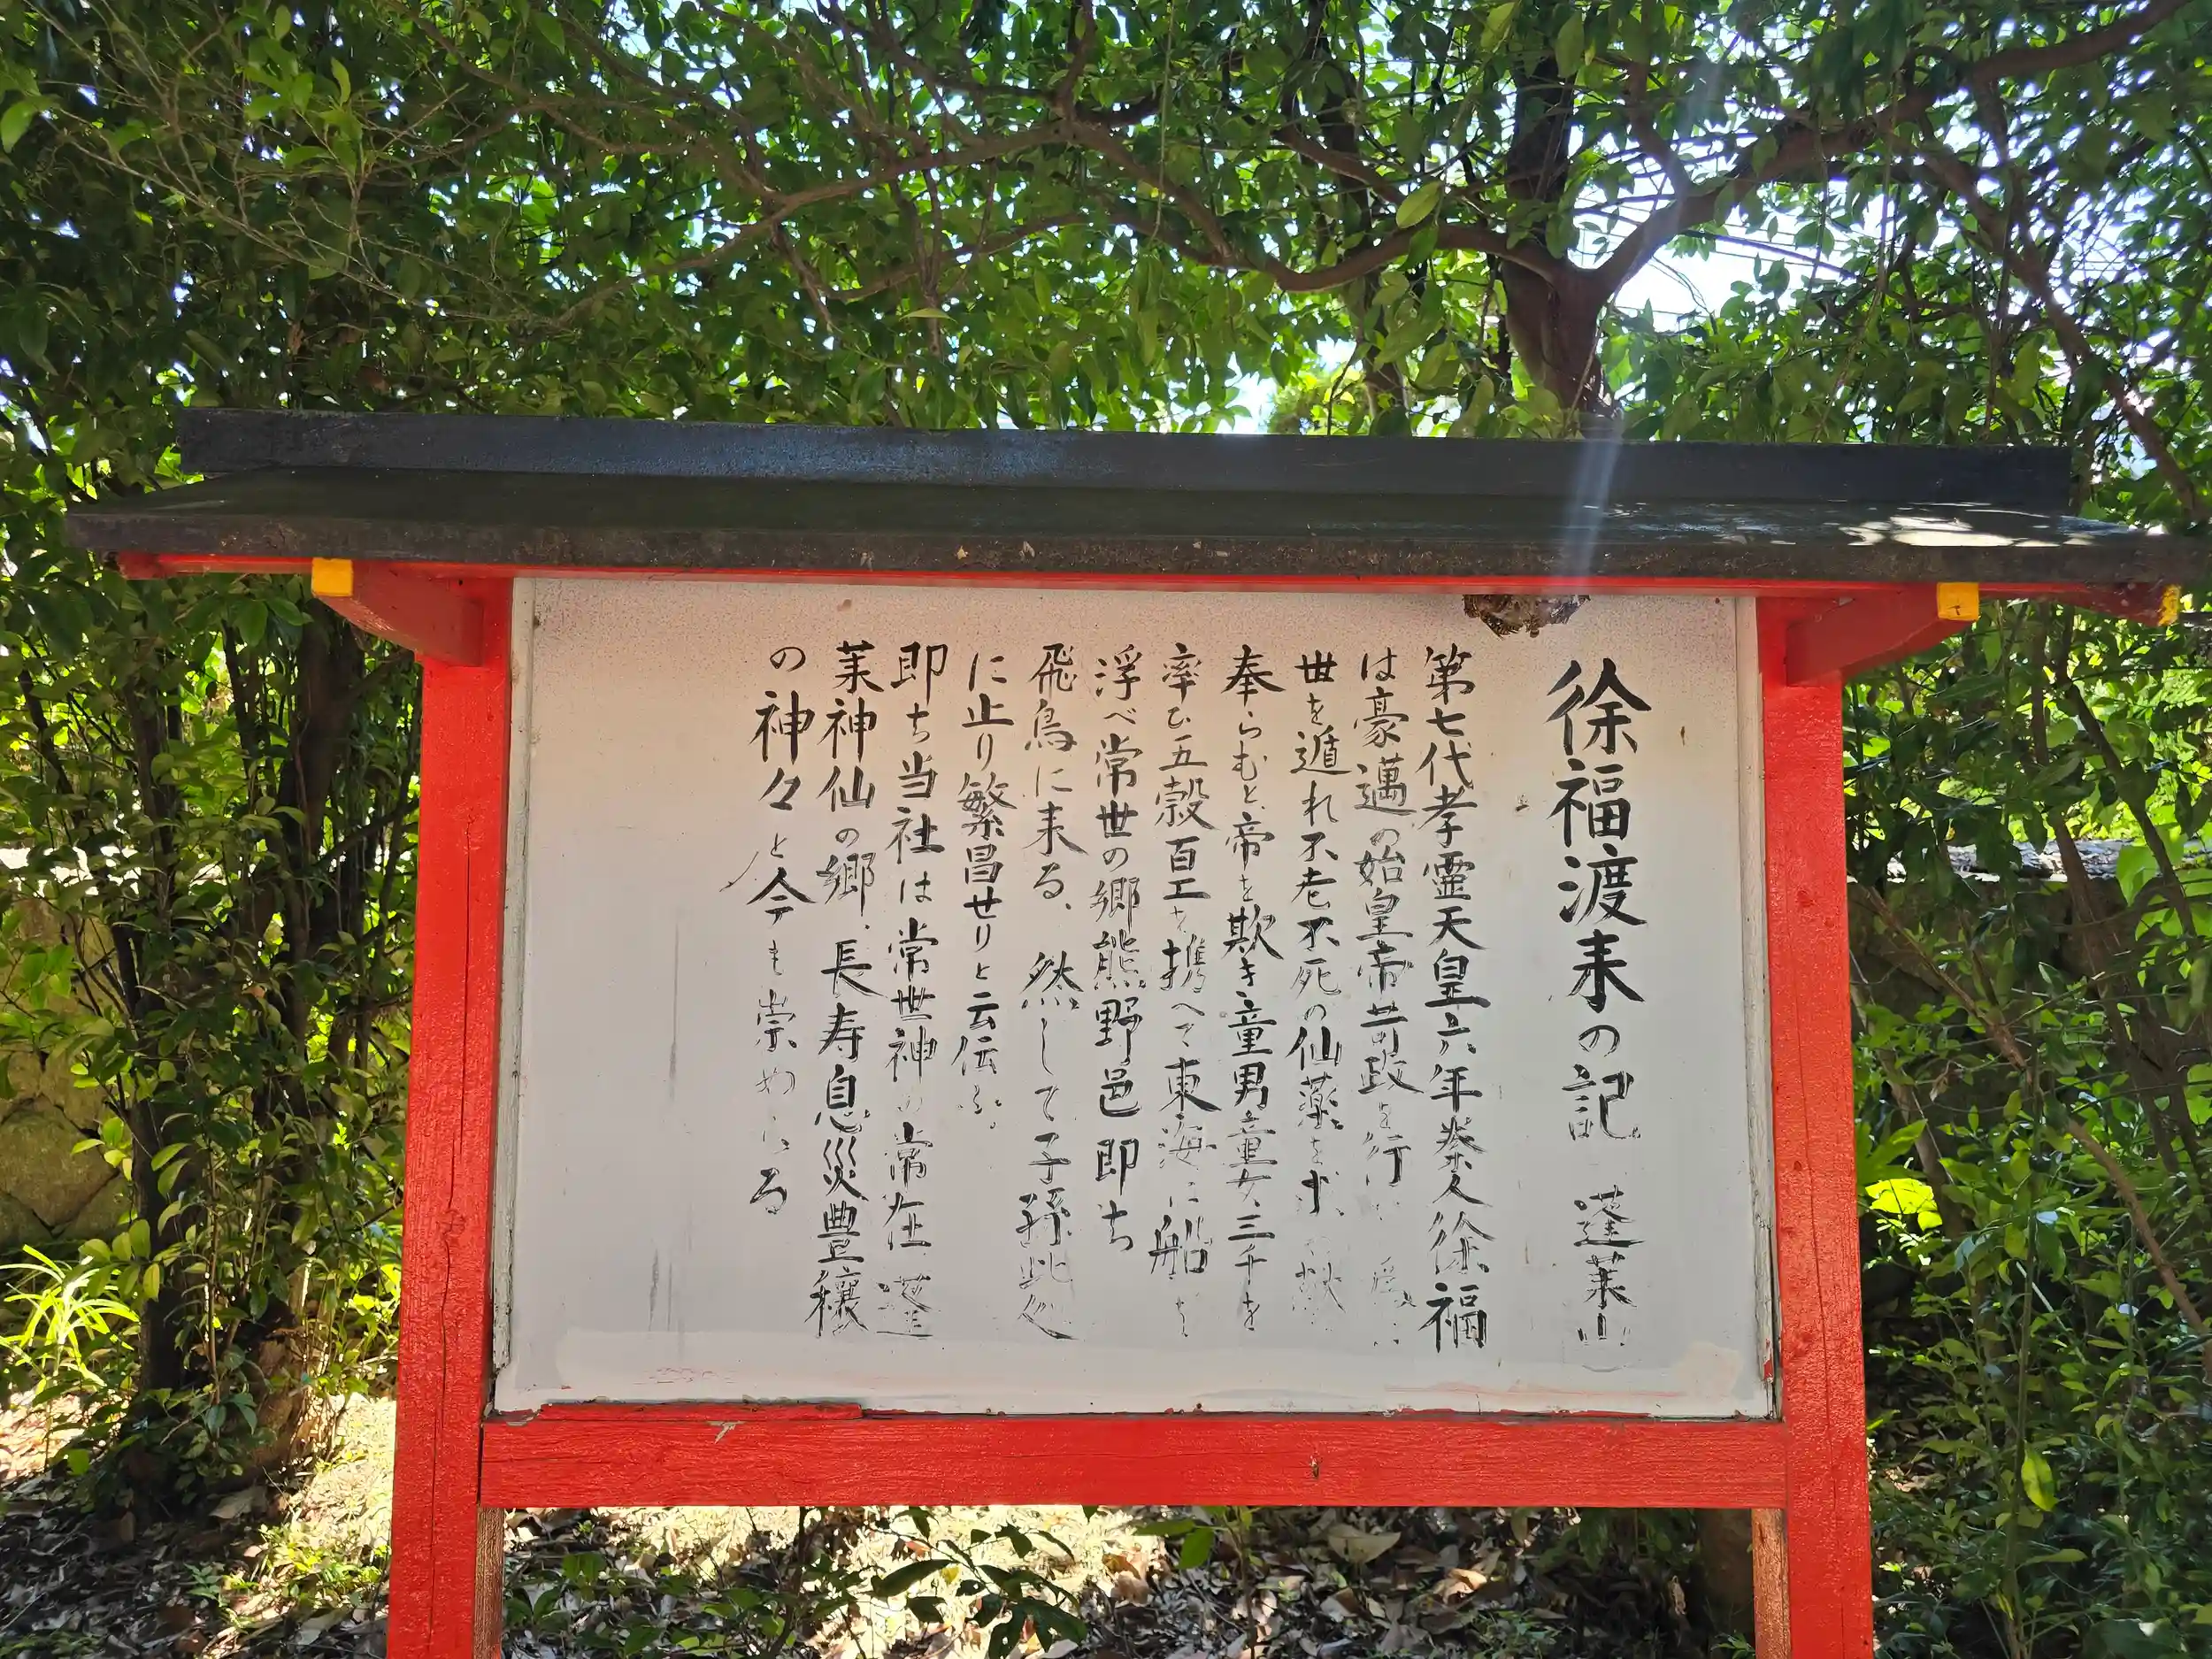 徐福渡来の記 蓬莱山
第七代孝霊天皇六年秦人徐福
は豪邁の始皇帝苛政を行
世を遁れ不老不死の仙薬を求 献
奉らむと、帝を欺き童男童女三千を
率ひ五穀百工を携へて東海に船を
浮べ常世の郷熊野邑即ち
飛鳥に来る、然して子孫此処
に止り繁昌せりと云伝ふ。
即ち当社は常世神の常在 蓬
莱神仙の郷、長寿息災豊穣
の神々と今も崇め る